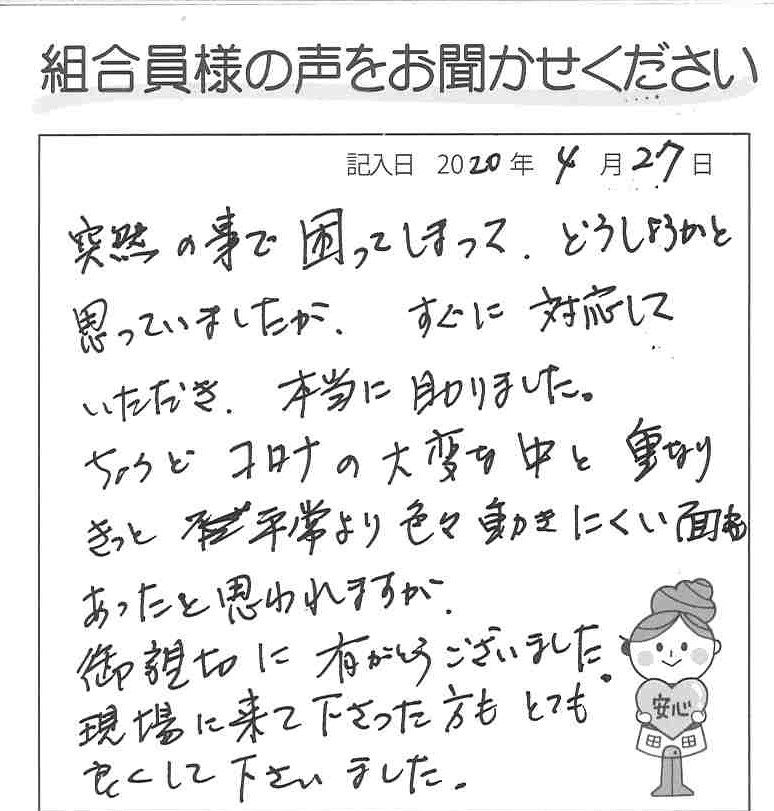 組合員様の声をお聞かせください
記入日 2020年 4月27日
突然の事で困ってしまって、どうしようかと
思っていましたが、すぐに対応して
いただき、本当に助かりました。
ちょうどコロナの大変な中と重なり
きっと 平常より色々動きにくい面も
あったと思われますが、
御親切に有がとうございました。
現場に来て下さった方もとても
良くして下さいました。
安心